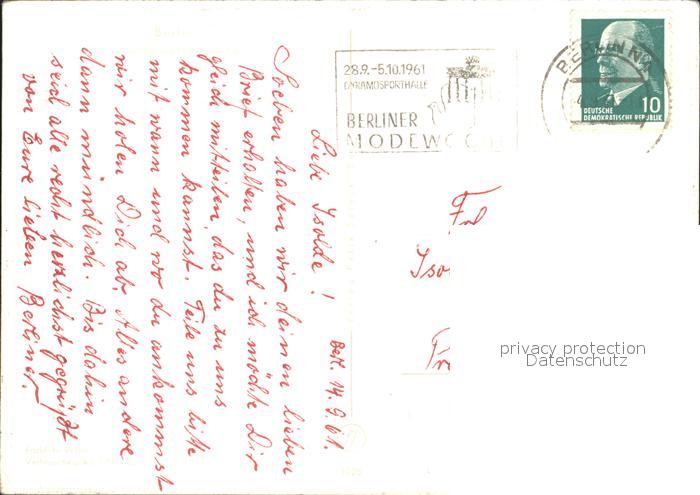 Berlin
Ber. 14.9.61.
Liebe Isolde!
Soeben haben wir deinen lieben
Brief erhalten, und ich möchte Dir
gleich mitteilen, das du zu uns
kommen kannst. Teile uns bitte
mit wann und wo du ankommst
wir holen Dich ab. Alles andere
dann mündlich. Bis dahin
seid alle recht herzlichst gegrüßt
von Eure lieben Berliner.
28.9.-5.10.1961
DYNAMOSPORTHALLE
BERLINER
MODEWO
BERLIN N
10
DEUTSCHE
DEMOKRATISCHE REPUBLIK
Frl
Iso
Fr
privacy protection
Datenschutz